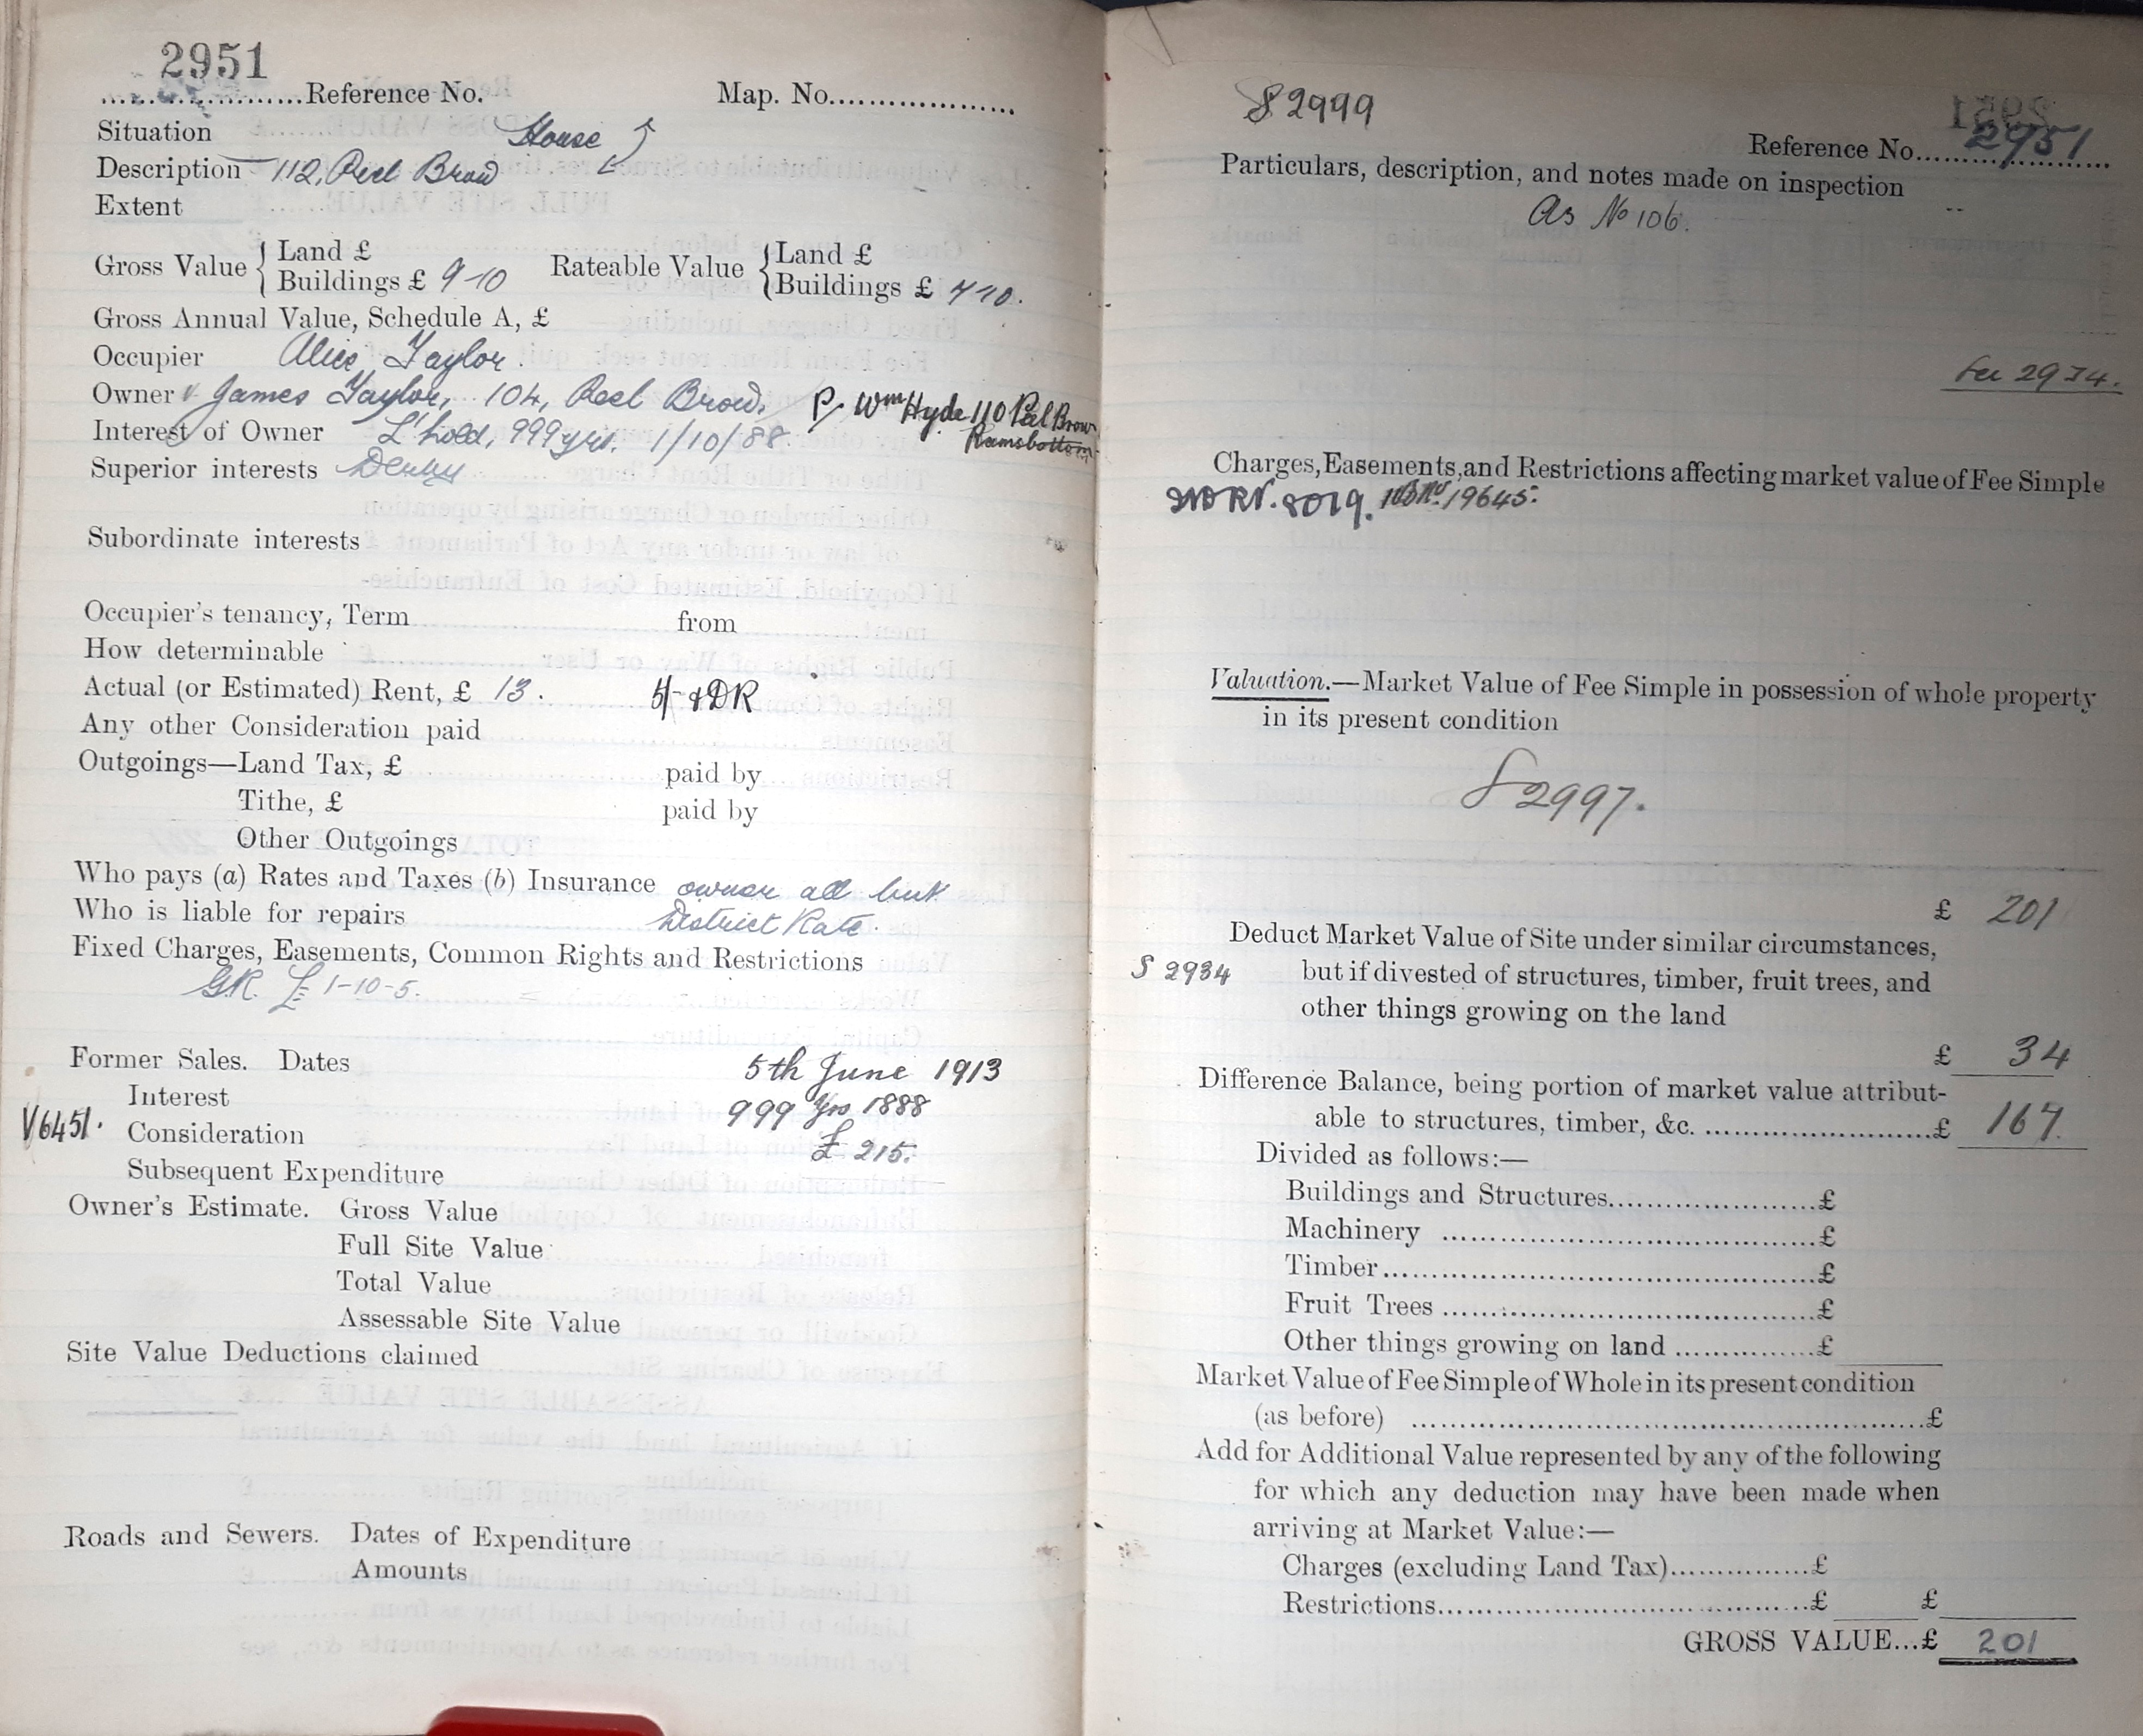 2951
.....................Reference No. Map. No....................
Situation House
Description 112, Peel Brow
Extent
Gross Value { Land £ Rateable Value { Land £
Buildings £ 9-10 Buildings £ 7-10.
Gross Annual Value, Schedule A, £
Occupier Alice Taylor.
Owner James Taylor, 104, Peel Brow. P/ Wm Hyde 110 Peel Brow
Ramsbottom
Interest of Owner L'hold, 999 yrs. 1/10/88.
Superior interests Derby
Subordinate interests
Occupier's tenancy, Term from
How determinable
Actual (or Estimated) Rent, £ 13. 5/- & DR
Any other Consideration paid
Outgoings—Land Tax, £ paid by
Tithe, £ paid by
Other Outgoings
Who pays (a) Rates and Taxes (b) Insurance owner all but
Who is liable for repairs District Rate.
Fixed Charges, Easements, Common Rights and Restrictions
GR. £1-10-5.
Former Sales. Dates 5th June 1913
Interest 999 Yrs 1888
V6451. Consideration £ 215.
Subsequent Expenditure
Owner's Estimate. Gross Value
Full Site Value
Total Value
Assessable Site Value
Site Value Deductions claimed
Roads and Sewers. Dates of Expenditure
Amounts
S 2999
Reference No. 2951
Particulars, description, and notes made on inspection
As No 106.
2934.
Charges, Easements, and Restrictions affecting market value of Fee Simple
8019. 19645.
Valuation.—Market Value of Fee Simple in possession of whole property
in its present condition
S 2997.
£ 201
Deduct Market Value of Site under similar circumstances,
S 2934 but if divested of structures, timber, fruit trees, and
other things growing on the land
£ 34
Difference Balance, being portion of market value attribut-
able to structures, timber, &c. ............................£ 167.
Divided as follows:—
Buildings and Structures.........................£
Machinery .............................................£
Timber....................................................£
Fruit Trees .............................................£
Other things growing on land ................£
Market Value of Fee Simple of Whole in its present condition
(as before) ..........................................................£
Add for Additional Value represented by any of the following
for which any deduction may have been made when
arriving at Market Value:—
Charges (excluding Land Tax)................£
Restrictions.............................................£ £
GROSS VALUE...£ 201